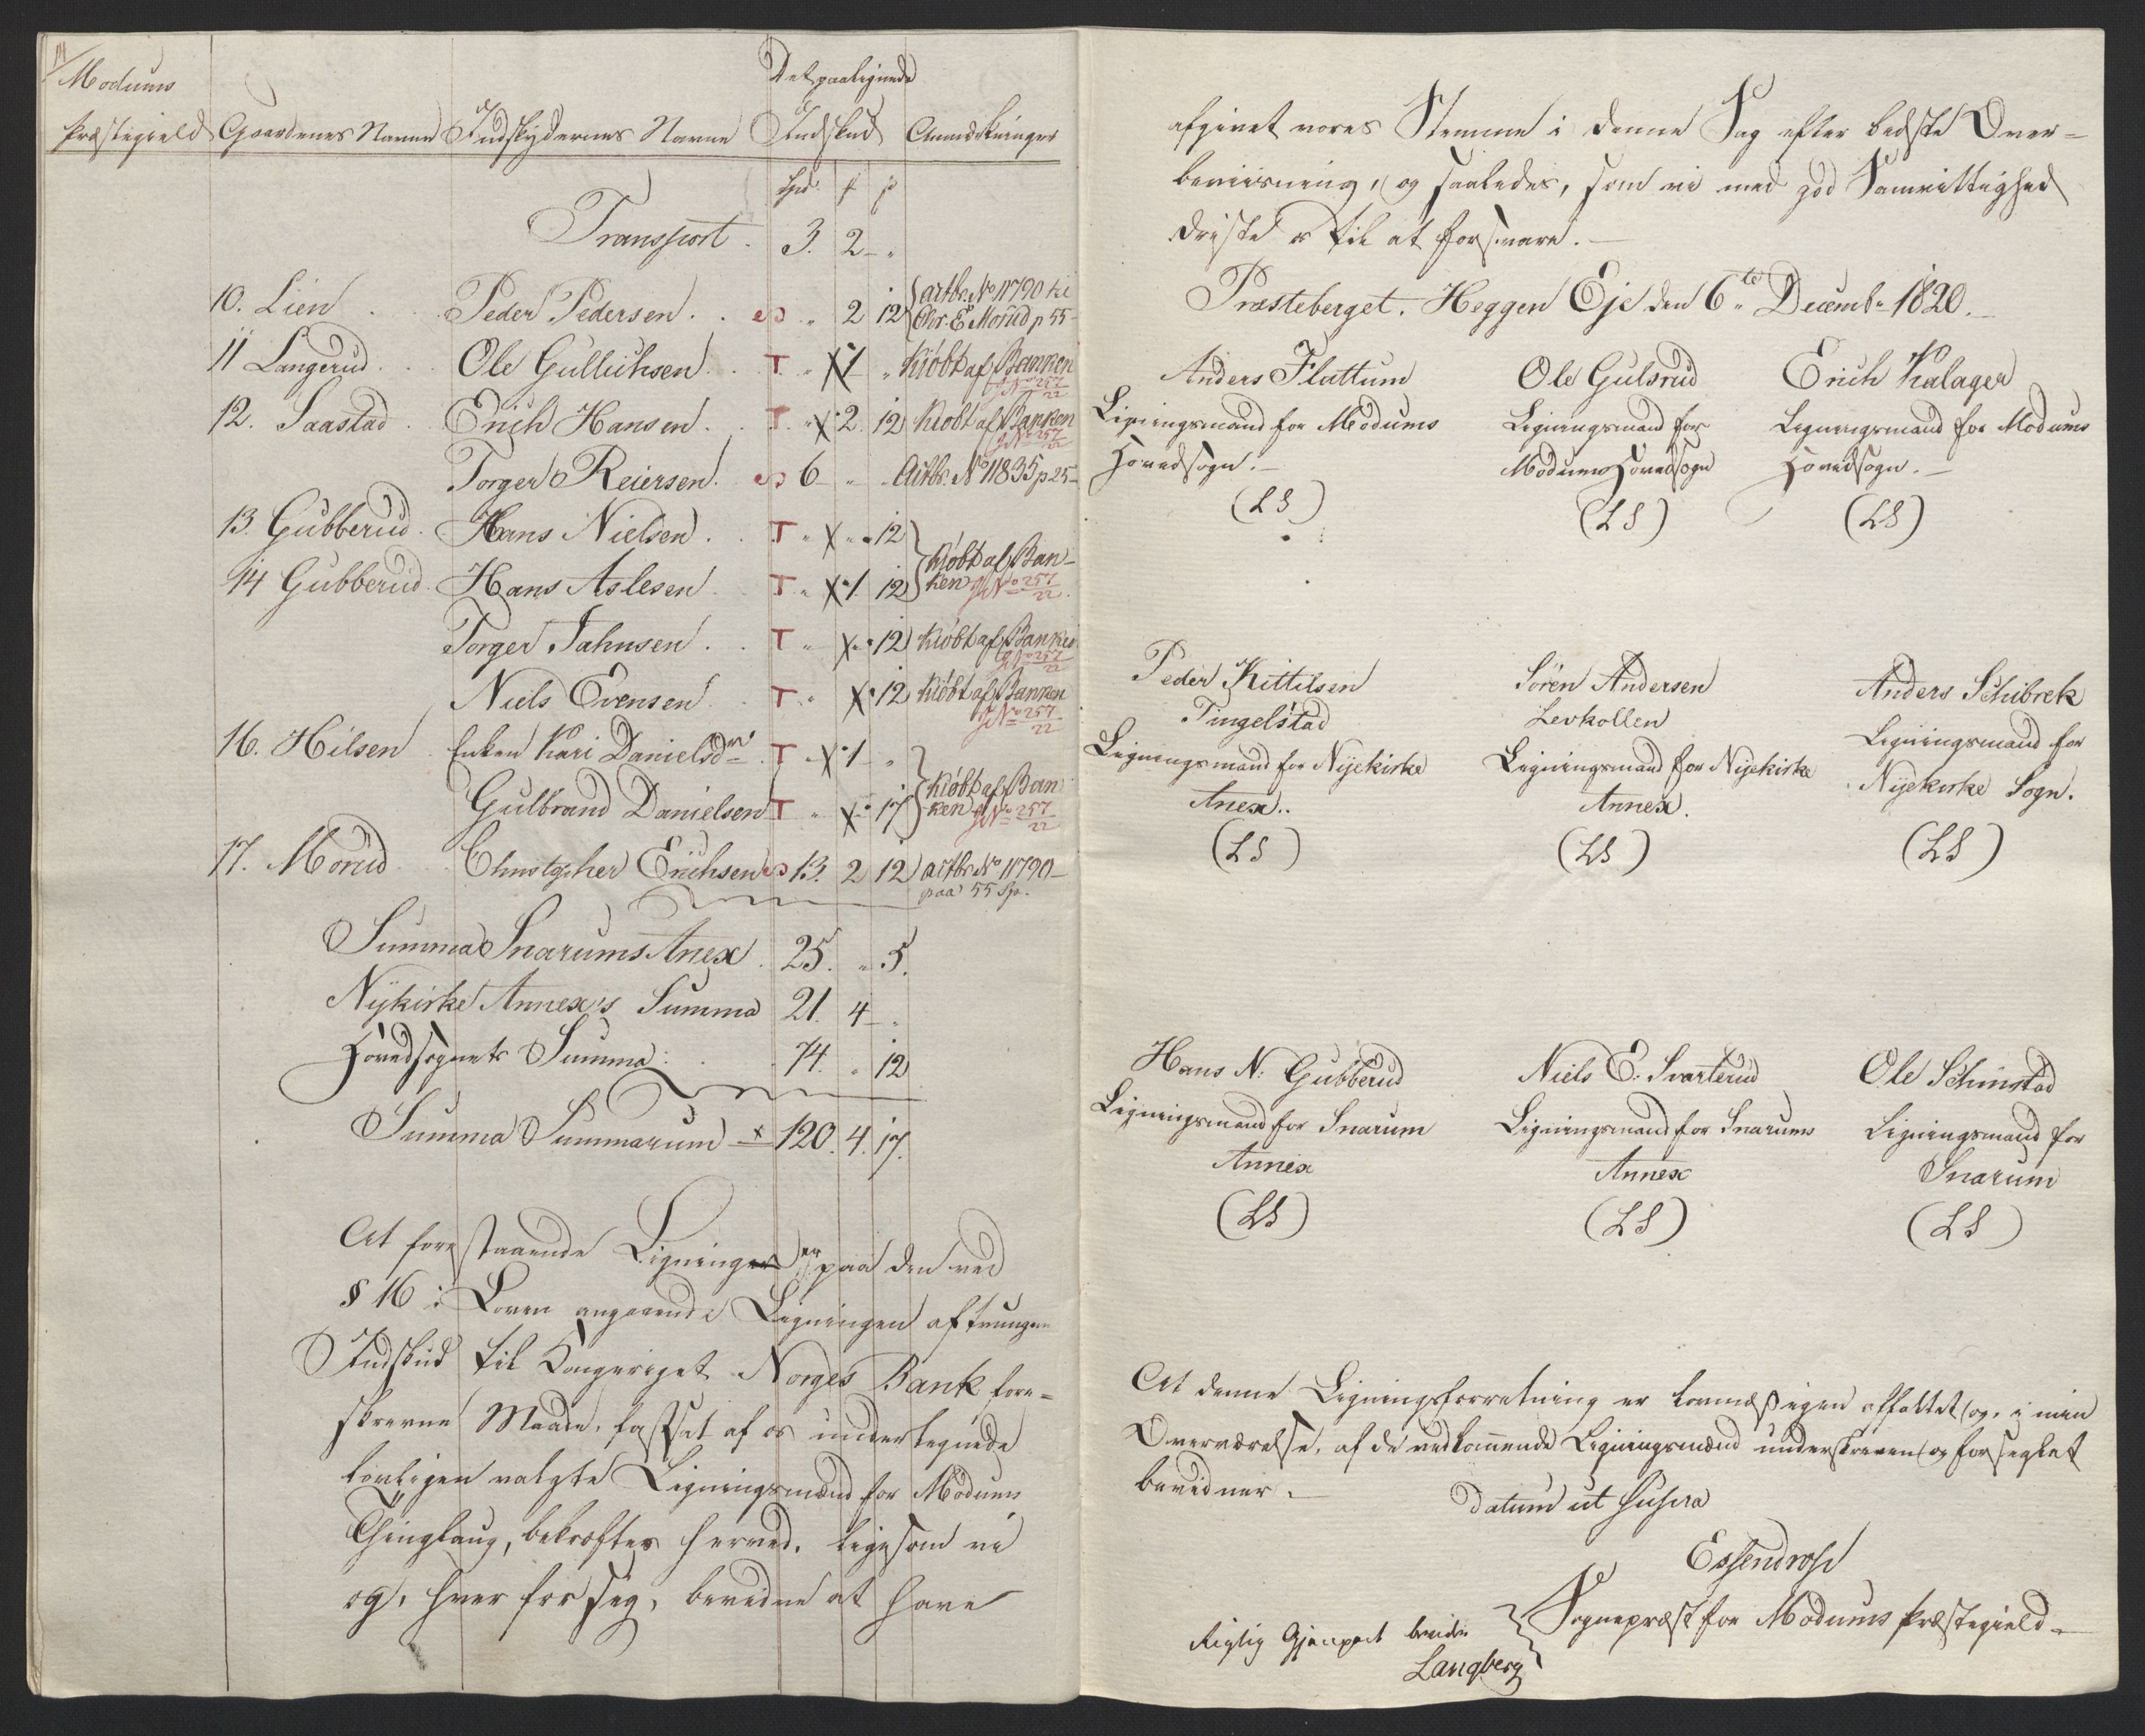 Modums
Præstegield Gaardenes Navne Indskydernes Navne Det paalignede Indskud Anmerkninger
Spd. ƒ ſ
Transport. 3. 2 "
10. Lien Peder Pedersen. " 2 12 Actbr. No 11790 til Chr. E. Morud p 55
11 Langerud. Ole Gullichsen. T. " X1 " Kiöbt af Banken
J No 257/22
12. Saastad Erich Hansen. T. " X 2. 12 Kiöbt af Banken
J No 257/22
Torger Reiersen. 6 " " Actbr. No 11835 p 25
13. Gubberud. Hans Nielsen. T " X " 12
14 Gubberud. Hans Aslesen T " X 1. 12 Kiöbt af Banken J No 257/22
Torger Jahnsen. T " X " 12 Kiöbt af Banken
J No 257/22
Niels Evensen T " X " 12 Kiöbt af Banken
J No 257/22
16. Hilsen Enken Kari Danielsdr. T " X 1 "
Gulbrand Danielsen T " X " 17 Kiöbt af Banken J No 257/22
17. Morud Christopher Erichsen 13. 2 12 Actbr. No 11790
paa 55 Sp.
Summa Snarums Anex. 25. " 5.
Nykirke Annex's Summa 21. 4 "
Hovedsognets Summa. 74. " 12
Summa Summarum 120. 4. 17.
At forestaaende Ligning er paa den ved
§ 16 i Loven angaaende Ligningen af tvungen
Indskud til Kongeriget Norges Bank fore-
skrevne Maade, fastsat af os undertegnede
lovligen valgte Ligningsmænd for Modums
Thinglaug, bekræftes herved. ligesom vi
og, hver for sig, bevidne at have
afgivet vores Stemme i denne Sag efter bedste Over-
beviisning, og saaledes, som vi med god Samvittighed
driste os til at forsvare.
Præsteberget. Heggen Eje den 6te Decembr 1820.
Anders Flattum Ole Gulsrud Erich Kalager
Ligningsmand for Modums Ligningsmand for Ligningsmand for Modums
Hovedsogn. Modums Hovedsogn Hovedsogn.
(LS) (LS) (LS)
Peder Kittilsen Sören Andersen Anders Schibrek
Tingelstad Levkollen Ligningsmand for
Ligningsmand for Nijekirke Ligningsmand for Nijekirke Nijekirke Sogn.
Anex.. Annex.
(LS) (LS) (LS)
Hans N: Gubberud Niels E: Svarterud Ole Schinstad
Ligningsmand for Snarum Ligningsmand for Snarums Ligningsmand for
Annex Annex Snarum
(LS) (LS) (LS)
At denne Ligningsforretning er lovmæssigen affattet, og, i min
Overværelse, af de vedkommende Ligningsmænd underskreven og forseglet
bevidner.
Datum ut supra
Essendrop
Sognepræst for Modums Præstegield
Rigtig Gjenpart bevidner
Langberg